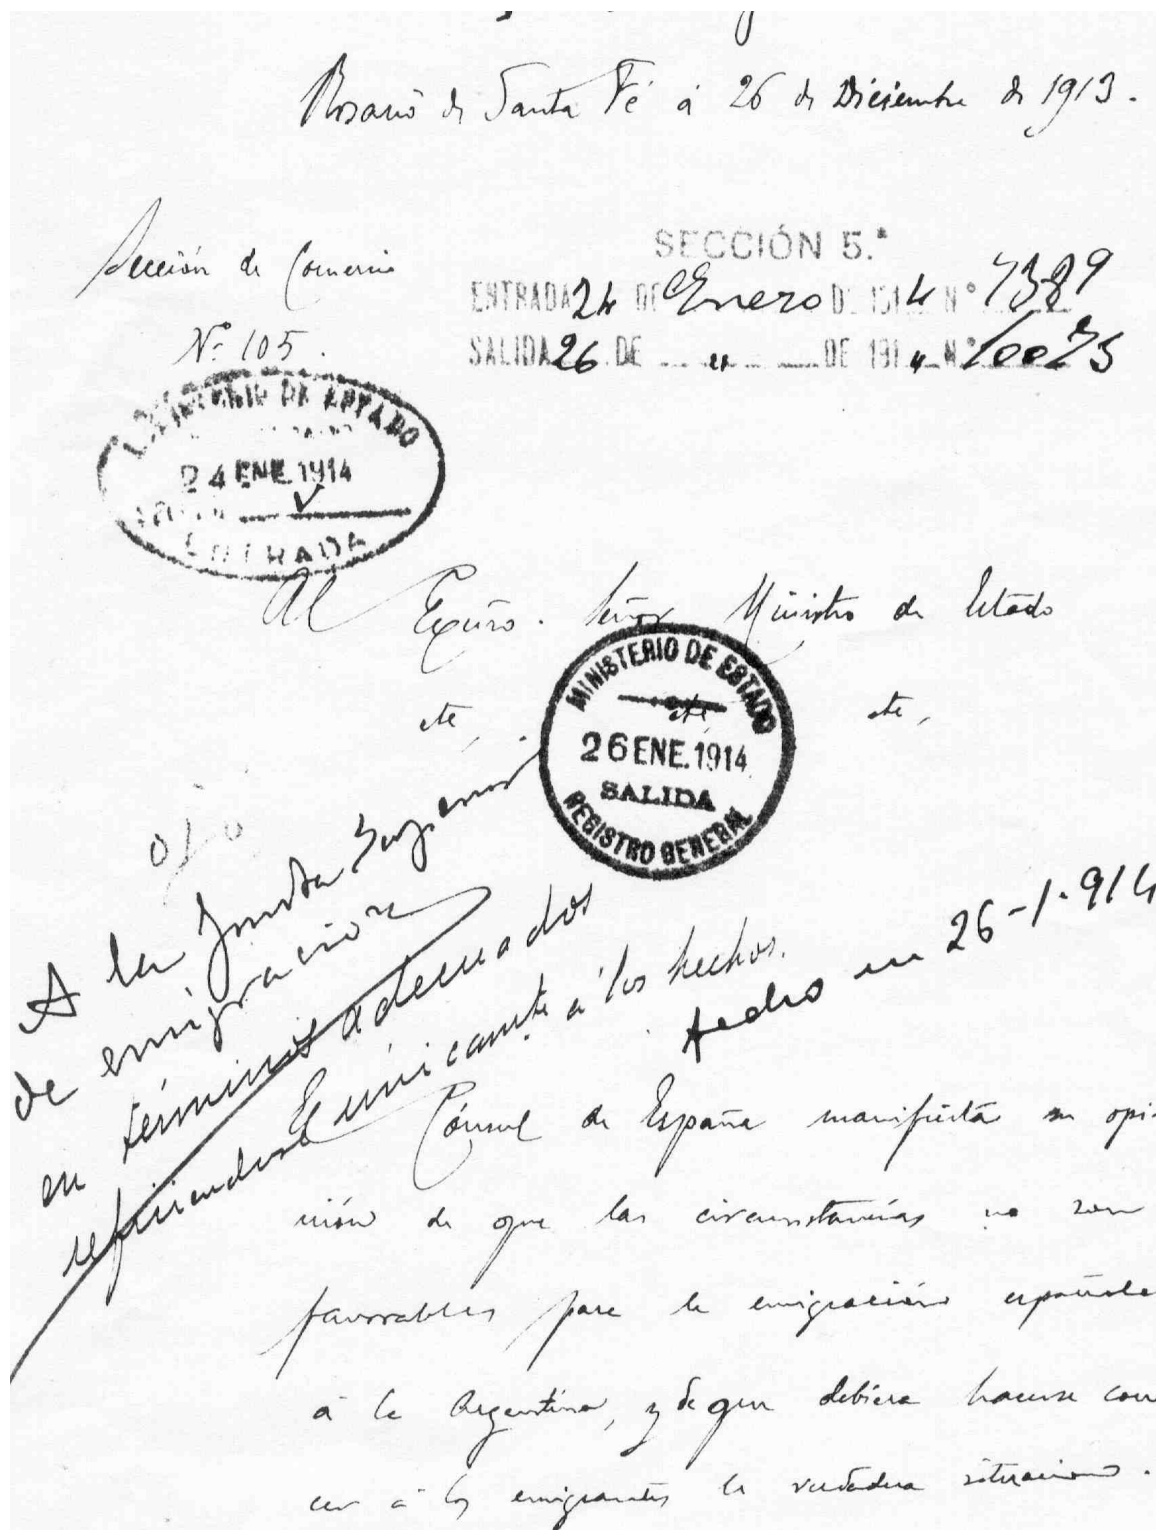 Rosario de Santa Fé á 26 de Diciembre de 1913.
Sección de Comercio
Nº 105.
SECCIÓN 5.ª
ENTRADA 24 DE Enero DE 1914 N.º 7389
SALIDA 26 DE " DE 191" N.º 10075
MINISTERIO DE ESTADO
24 ENE. 1914
ENTRADA
Al Exmo. Señor Ministro de Estado
etc, etc, etc,
MINISTERIO DE ESTADO
26 ENE. 1914
SALIDA
REGISTRO GENERAL
ojo
A la Junta Superior
de emigración
en términos adecuados
refiriendose unicamte á los hechos.
hecho en 26-1-914
El Cónsul de España manifiesta su opi-
nión de que las circunstancias no son
favorables para la emigración española
á la Argentina, y de que debiera hacerse cono
cer á los emigrantes la verdadera situacion.